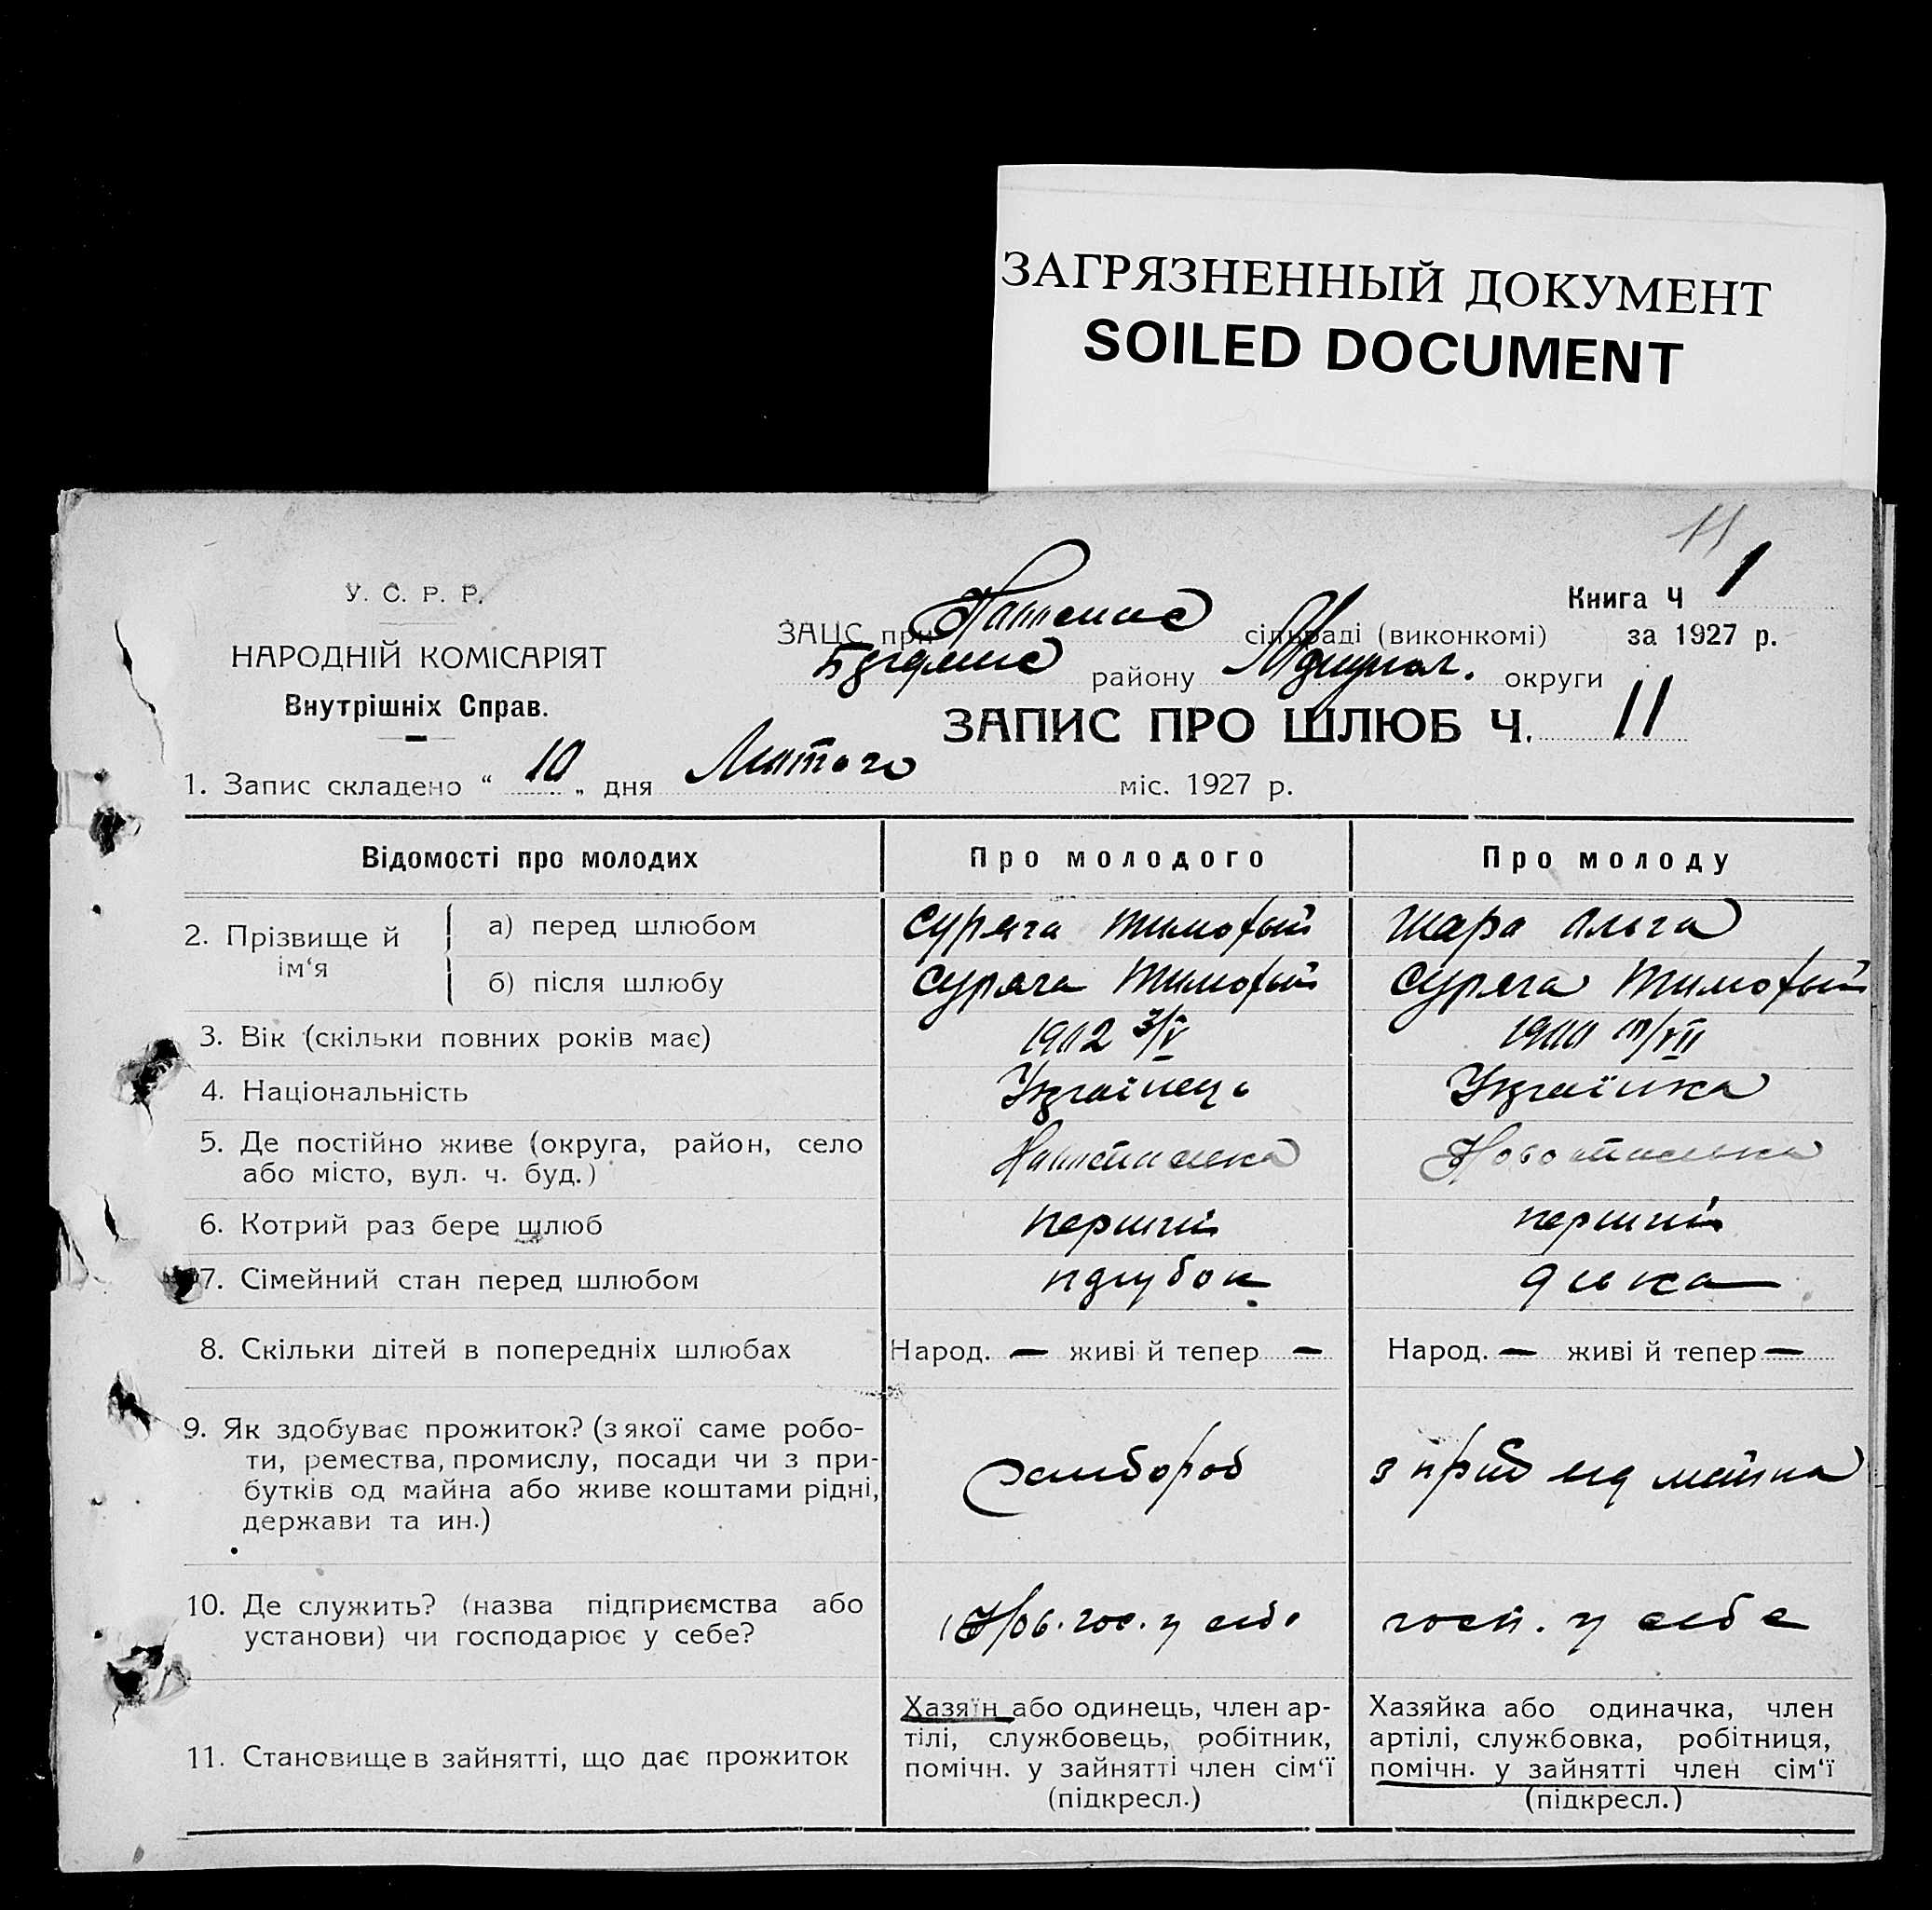 ЗАГРЯЗНЕННЫЙ ДОКУМЕНТ
SOILED DOCUMENT
11
У. С. Р. Р.
НАРОДНІЙ КОМІСАРІЯТ
Внутрішніх Справ.
Книга Ч 1
за 1927 р.
ЗАЦС при сільраді (виконкомі)
району округи
ЗАПИС ПРО ШЛЮБ Ч. 11
1. Запис складено “ 10 „ дня Лютого міс. 1927 р.
Відомості про молодих
Про молодого
Про молоду
2. Прізвище й ім‘я
а) перед шлюбом
Суряга Тимофый
Шара Ольга
б) після шлюбу
Суряга Тимофый
Суряга Тимофый
3. Вік (скільки повних років має)
1902 3/V
4. Національність
Українець
Українка
5. Де постійно живе (округа, район, село
або місто, вул. ч. буд.)
6. Котрий раз бере шлюб
перший
перший
7. Сімейний стан перед шлюбом
8. Скільки дітей в попередніх шлюбах
Народ. — живі й тепер —
Народ. — живі й тепер —
9. Як здобуває прожиток? (з якої саме робо-
ти, ремества, промислу, посади чи з при-
бутків од майна або живе коштами рідні,
держави та ин.)
хлибороб
з приб від майна
10. Де служить? (назва підприємства або
установи) чи господарює у себе?
гос. у себе
госп. у себе
11. Становище в зайнятті, що дає прожиток
Хазяїн або одинець, член ар-
тілі, службовець, робітник,
помічн. у зайнятті член сім‘ї
(підкресл.)
Хазяйка або одиначка, член
артілі, службовка, робітниця,
помічн. у зайнятті член сім‘ї
(підкресл.)